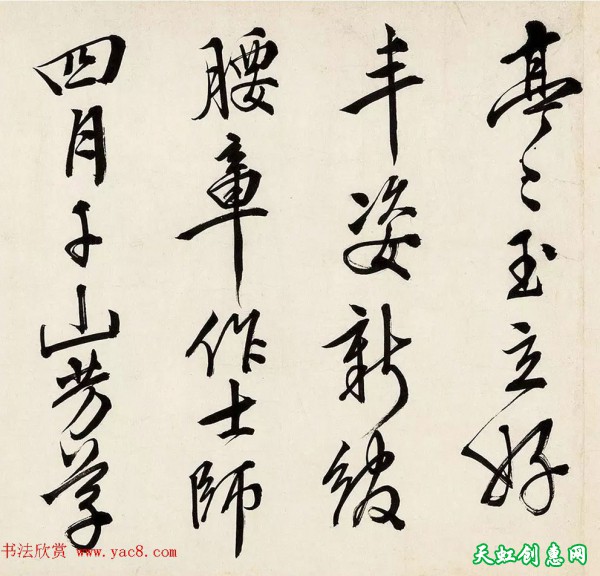 亭々玉立好
丰姿新綬
腰章作士師
四月千山芳草
书法欣赏 www.yac8.com
天虹创惠网